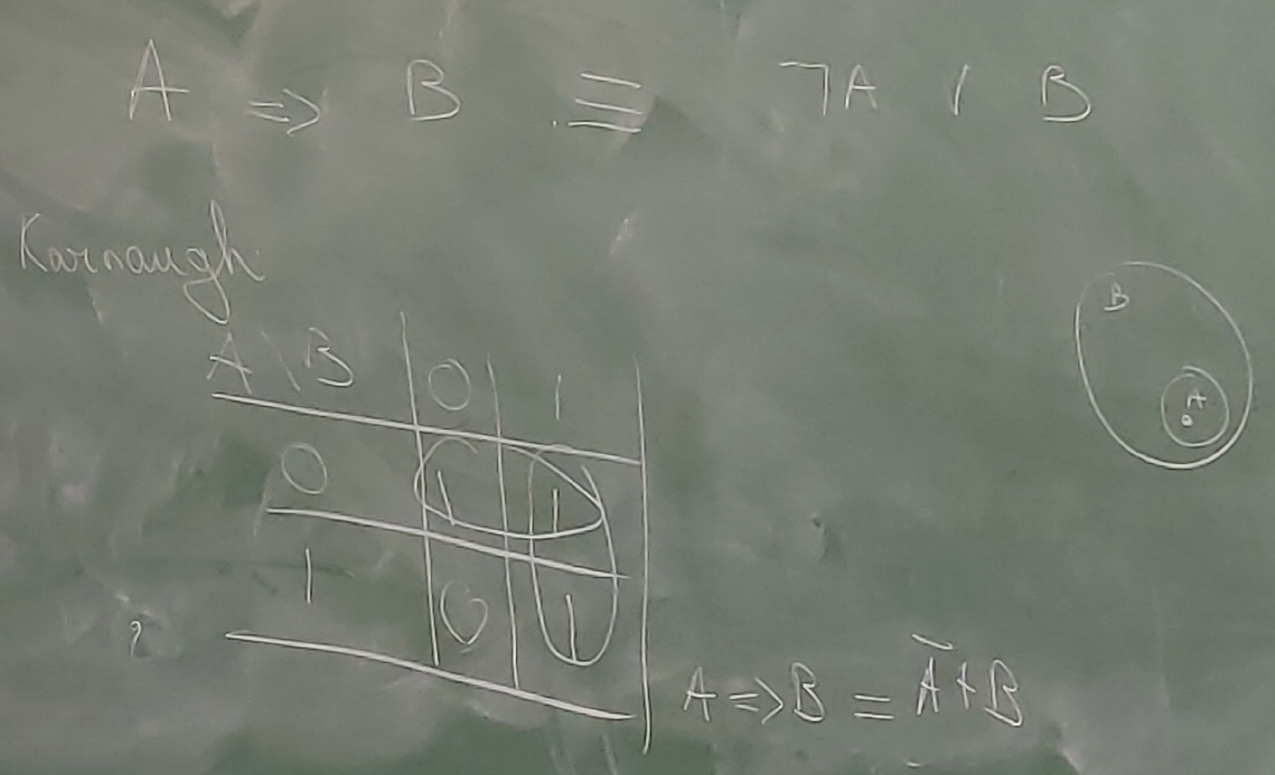 A => B ≡ ¬A / B
Karnaugh
A \ B 0 1
0 1 1
1 0 1
B
A
A => B = Ā + B